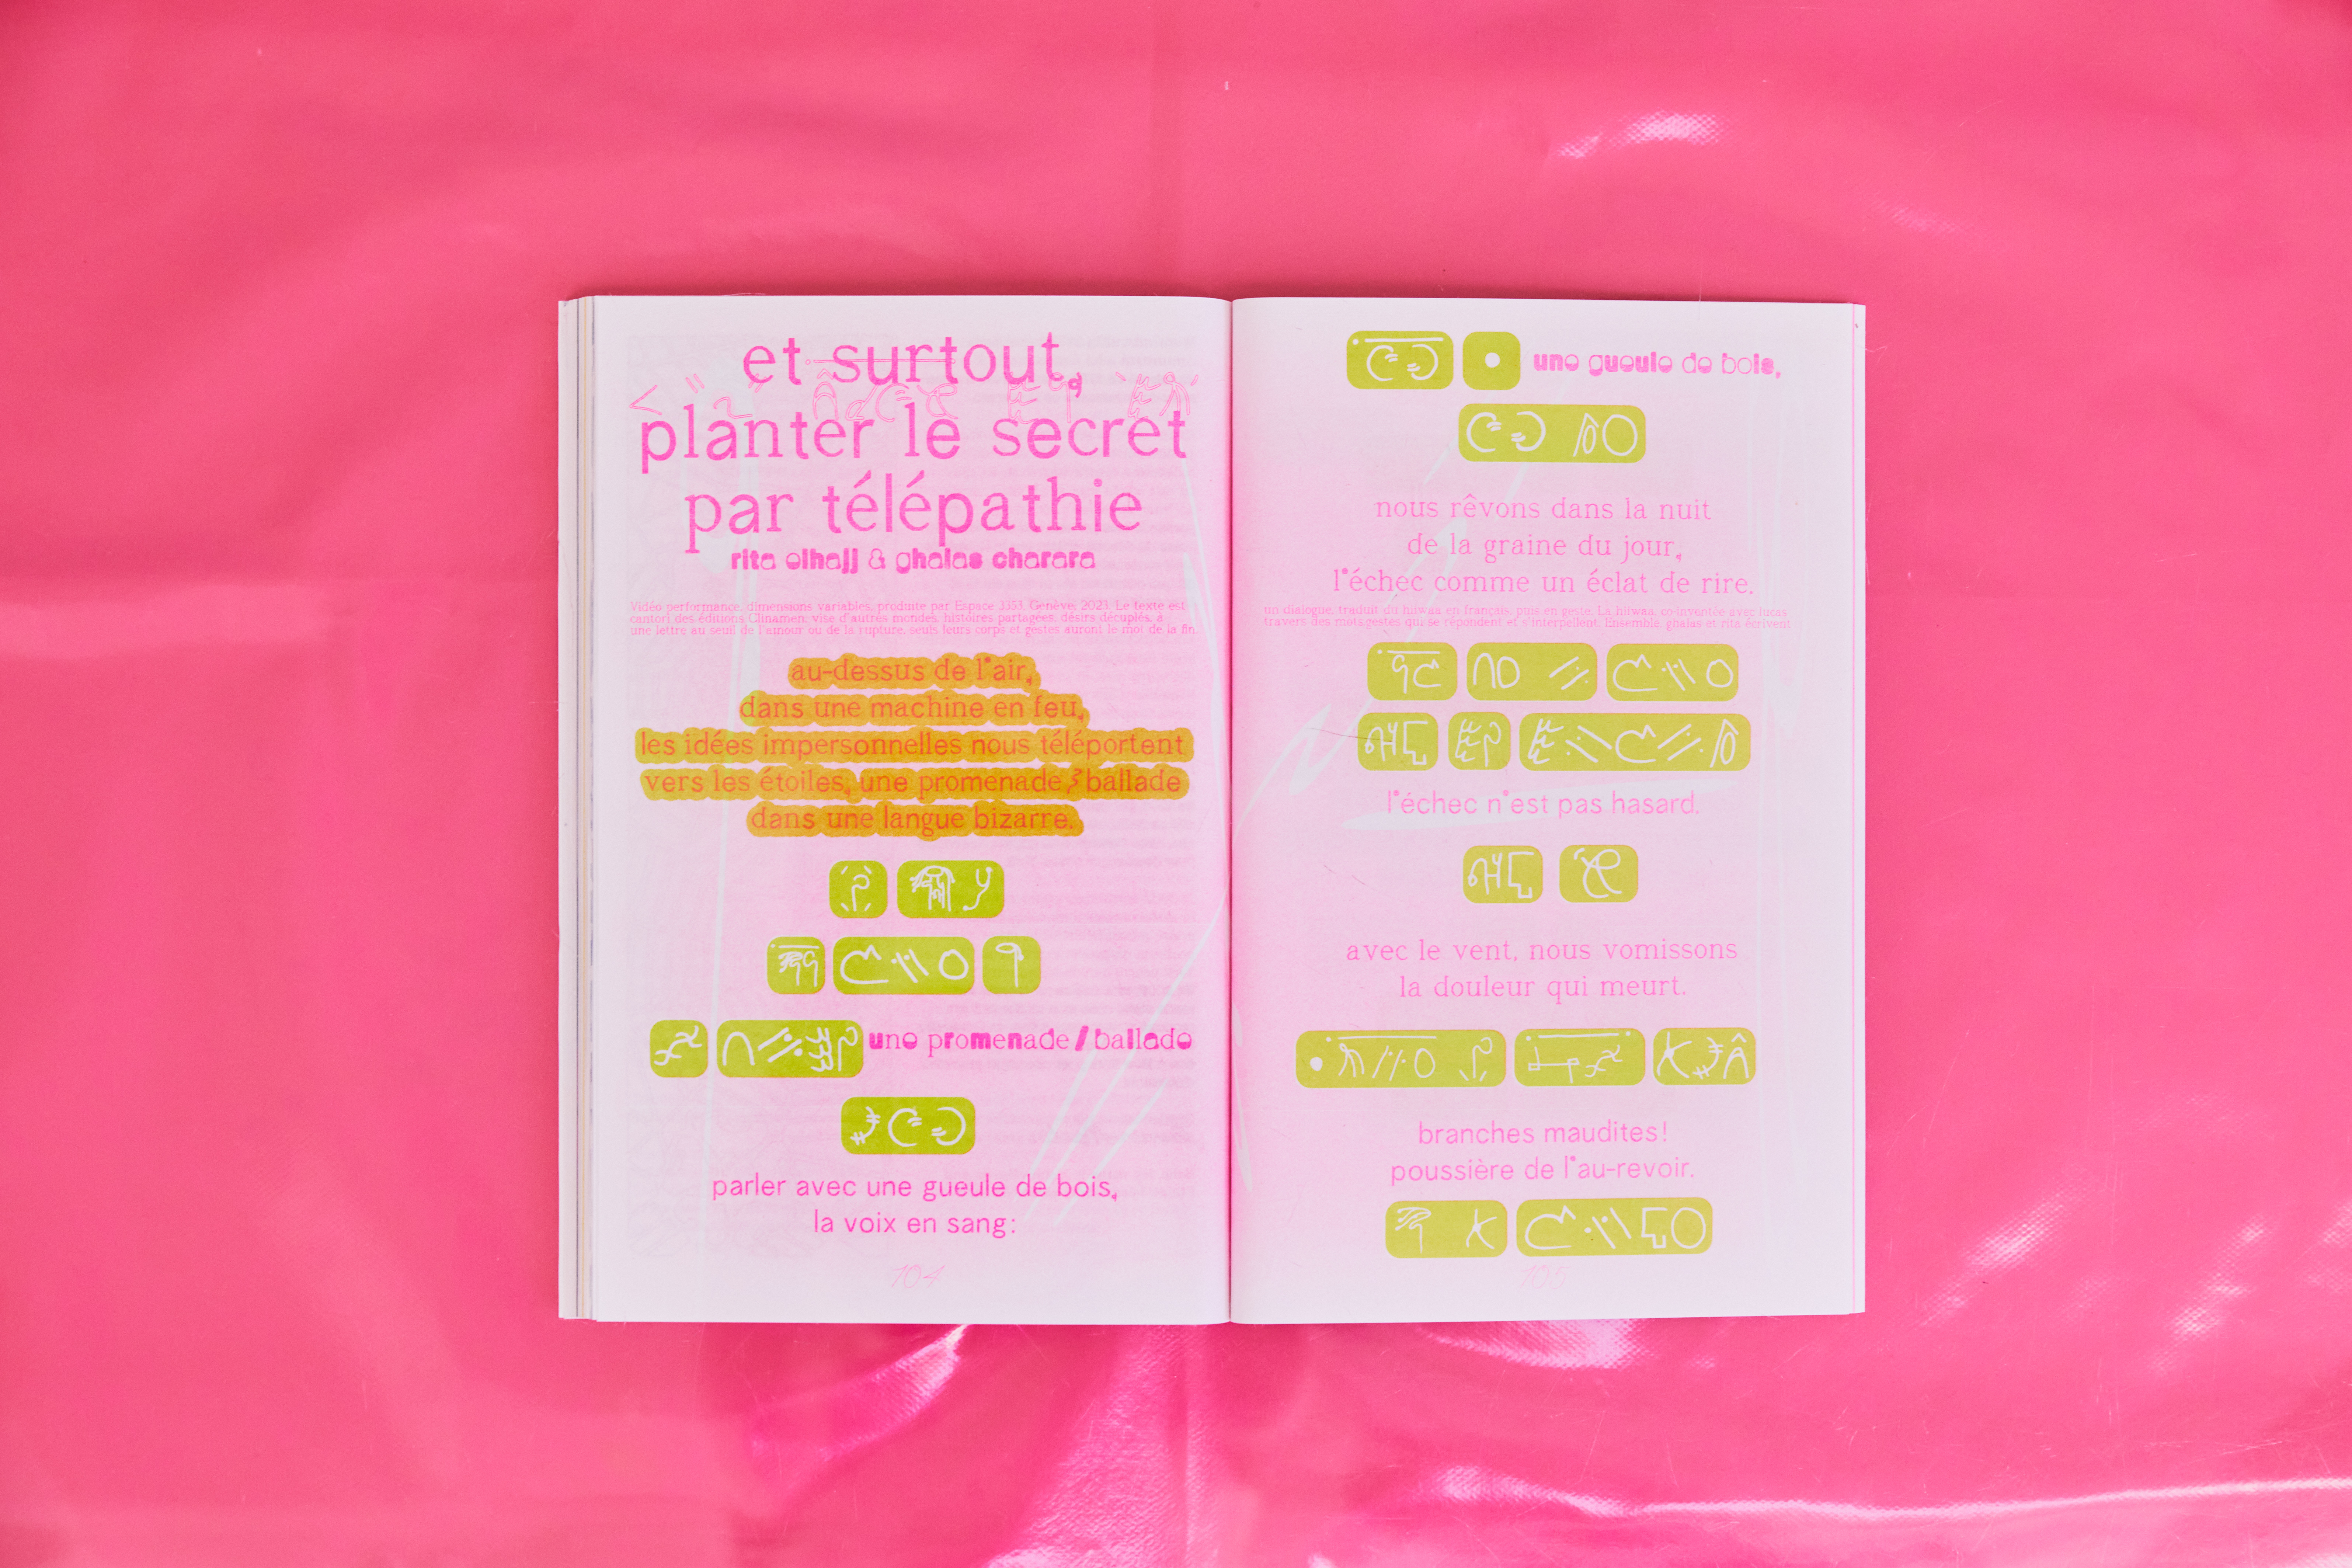 et surtout,
planter le secret
par télépathie
rita elhajj & ghalas charara
Vidéo performance, dimensions variables, produite par Espace 3353, Genève, 2023. Le texte est
cantori des éditions Clinamen, vise d'autres mondes, histoires partagées, désirs décuplés, à
une lettre au seuil de l'amour ou de la rupture, seuls leurs corps et gestes auront le mot de la fin.
au-dessus de l'air,
dans une machine en feu,
les idées impersonnelles nous téléportent
vers les étoiles, une promenade / ballade
dans une langue bizarre.
une promenade / ballade
parler avec une gueule de bois,
la voix en sang:
104
une gueule de bois,
nous rêvons dans la nuit
de la graine du jour,
l'échec comme un éclat de rire.
un dialogue, traduit du hiiwaa en français, puis en geste. La hiiwaa, co-inventée avec lucas
travers des mots gestes qui se répondent et s'interpellent. Ensemble, ghalas et rita écrivent
l'échec n'est pas hasard.
avec le vent, nous vomissons
la douleur qui meurt.
branches maudites!
poussière de l'au-revoir.
105